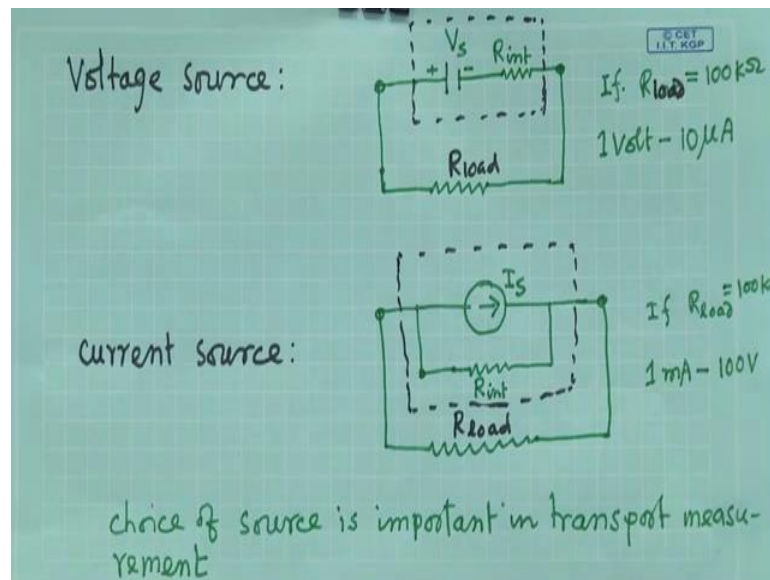 © CET
I.I.T. KGP
Voltage source:
Vs
+ -
Rint
Rload
If. Rload = 100 kΩ
1 Volt - 10 μA
current source:
Is
Rint
Rload
If Rload = 100k
1 mA - 100V
choice of source is important in transport measu-
rement